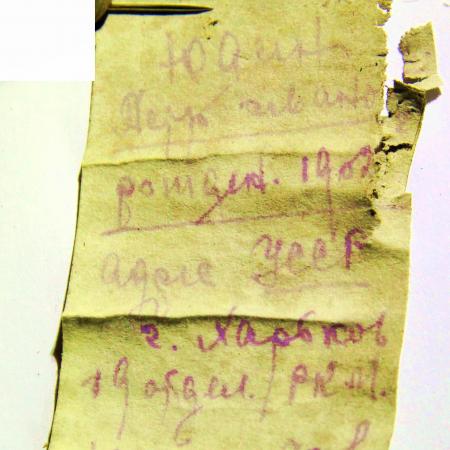 Юдин
Петр Ивано
рожден. 1902
адрес УССР
г. Харьков
19 отдел. РКМ.